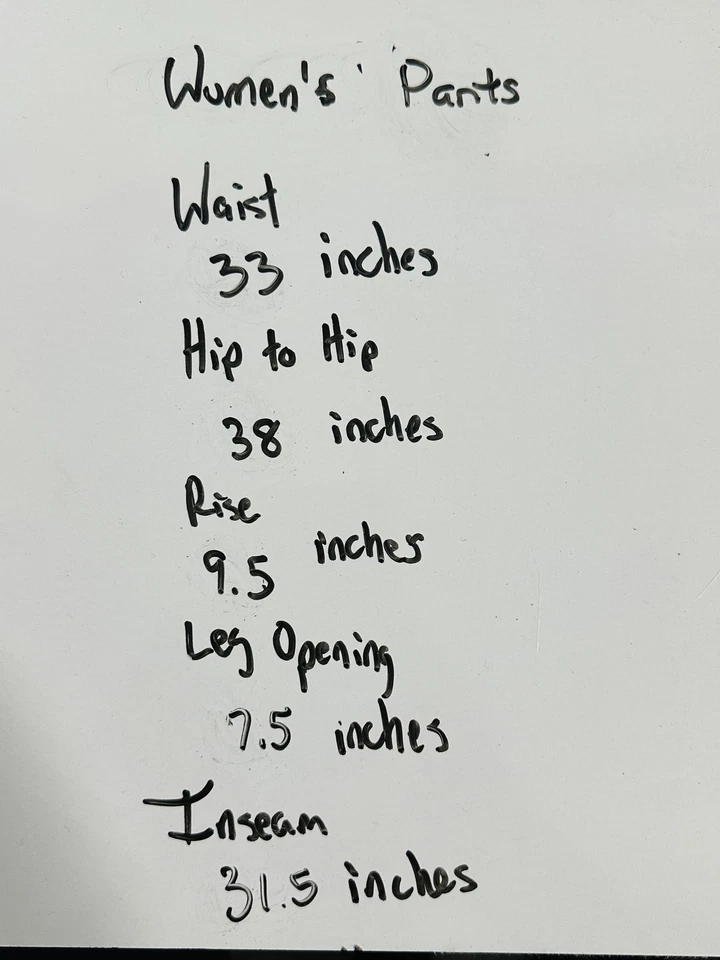 Women's Pants
Waist
33 inches
Hip to Hip
38 inches
Rise
9.5 inches
Leg Opening
7.5 inches
Inseam
31.5 inches